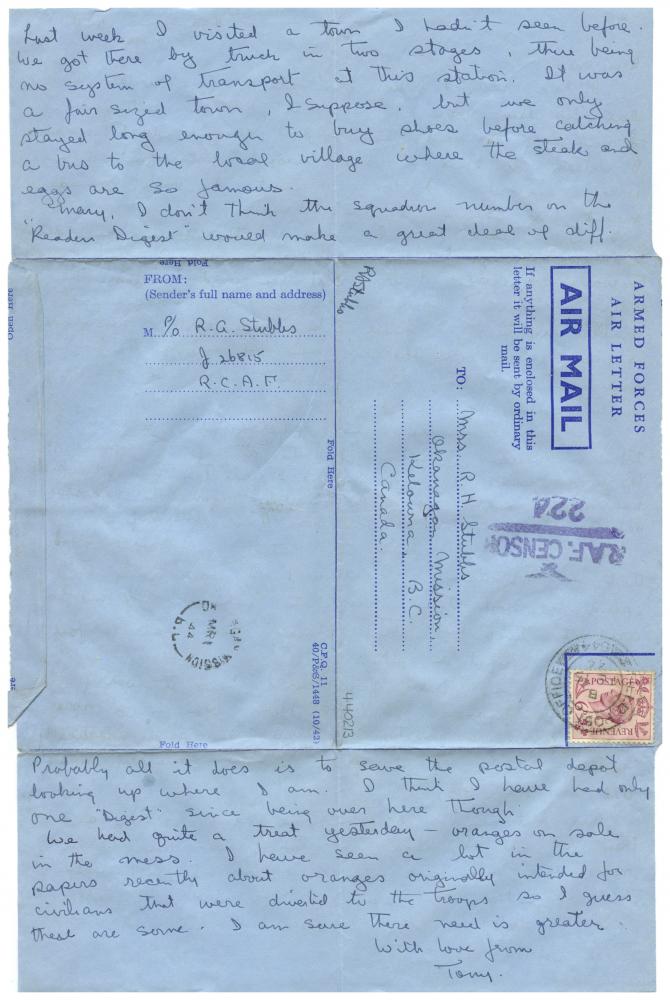 Last week I visited a town I hadn't seen before.
We got there by truck in two stages, there being
no system of transport at this station. It was
a fair sized town, I suppose, but we only
stayed long enough to buy shoes before catching
a bus to the local village where the steak and
eggs are so famous.
Mary, I don't think the squadron number on the
"Readers Digest" would make a great deal of diff.
Open Here
Fold Here
FROM:
(Sender's full name and address)
M. P/O R.A. Stubbs
J 26815
R.C.A.F.
Fold Here
RAStubbs
ARMED FORCES
AIR LETTER
AIR MAIL
If anything is enclosed in this
letter it will be sent by ordinary
mail.
TO: Mrs. R H Stubbs
Okanagan Mission,
Kelowna, B.C.
Canada.
R.A.F. CENSOR
224
POSTAGE
REVENUE
MISSION
MR 1
44
B.C.
C.P.Q. 11
40/P&S/1448 (10/42)
440213
Fold Here
Probably all it does is to save the postal depot
looking up where I am. I think I have had only
one "Digest" since being over here though
We had quite a treat yesterday – oranges on sale
in the mess. I have seen a lot in the
papers recently about oranges originally intended for
civilians that were diverted to the troops so I guess
these are some. I am sure there need is greater.
With love from
Tony.